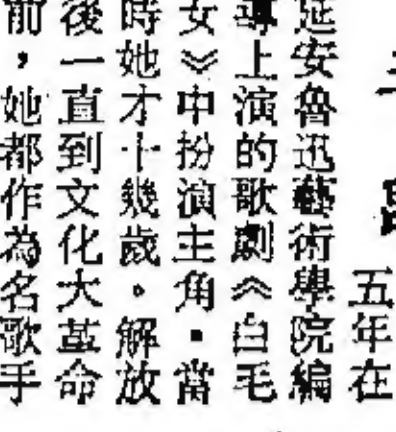 五年在
延安魯迅藝術學院編
導上演的歌劇《白毛
女》中扮演主角．當
時她才十幾歲。解放
後一直到文化大革命
前，她都作為名歌手